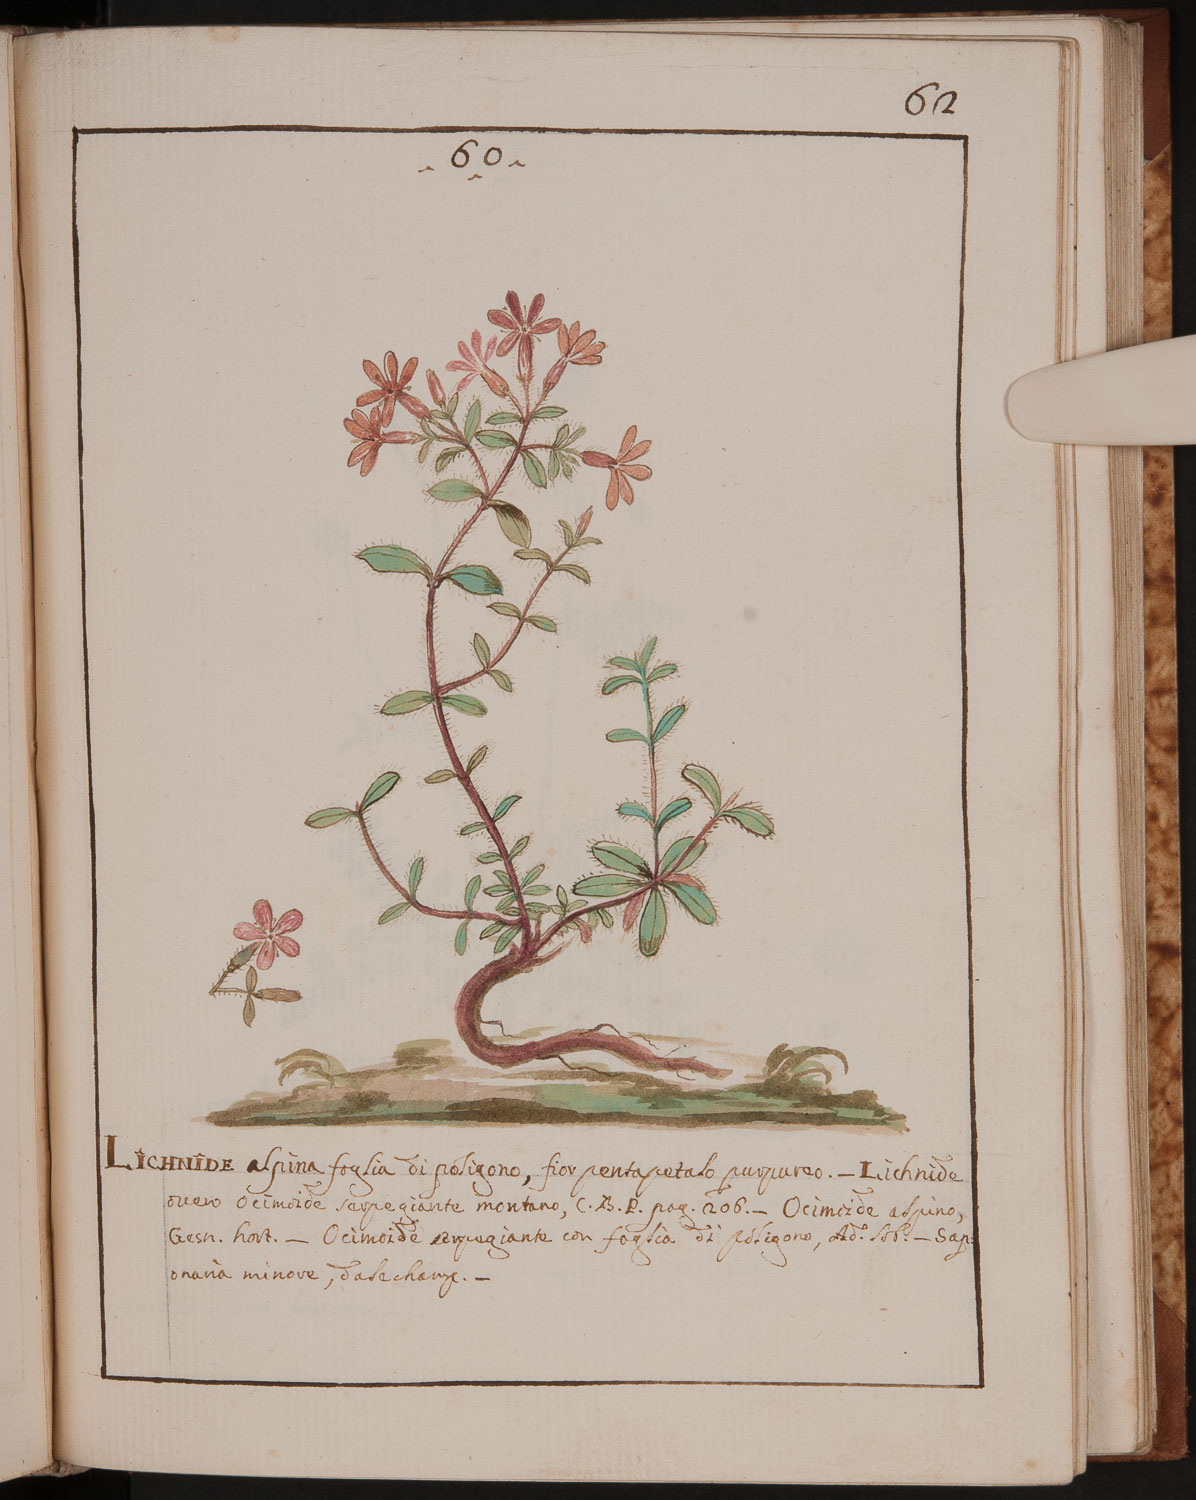 62
60
LICHNIDE alpina foglia di poligono, fior pentapetalo purpureo. — Lichnide
overo Ocimoide serpegiante montano, C. B. P. pag. 206. — Ocimoide alpino,
Gesn. hort. — Ocimoide serpegiante con foglia di poligono, Ad. Lob. — Sap:
onaria minore, dalechamp. —